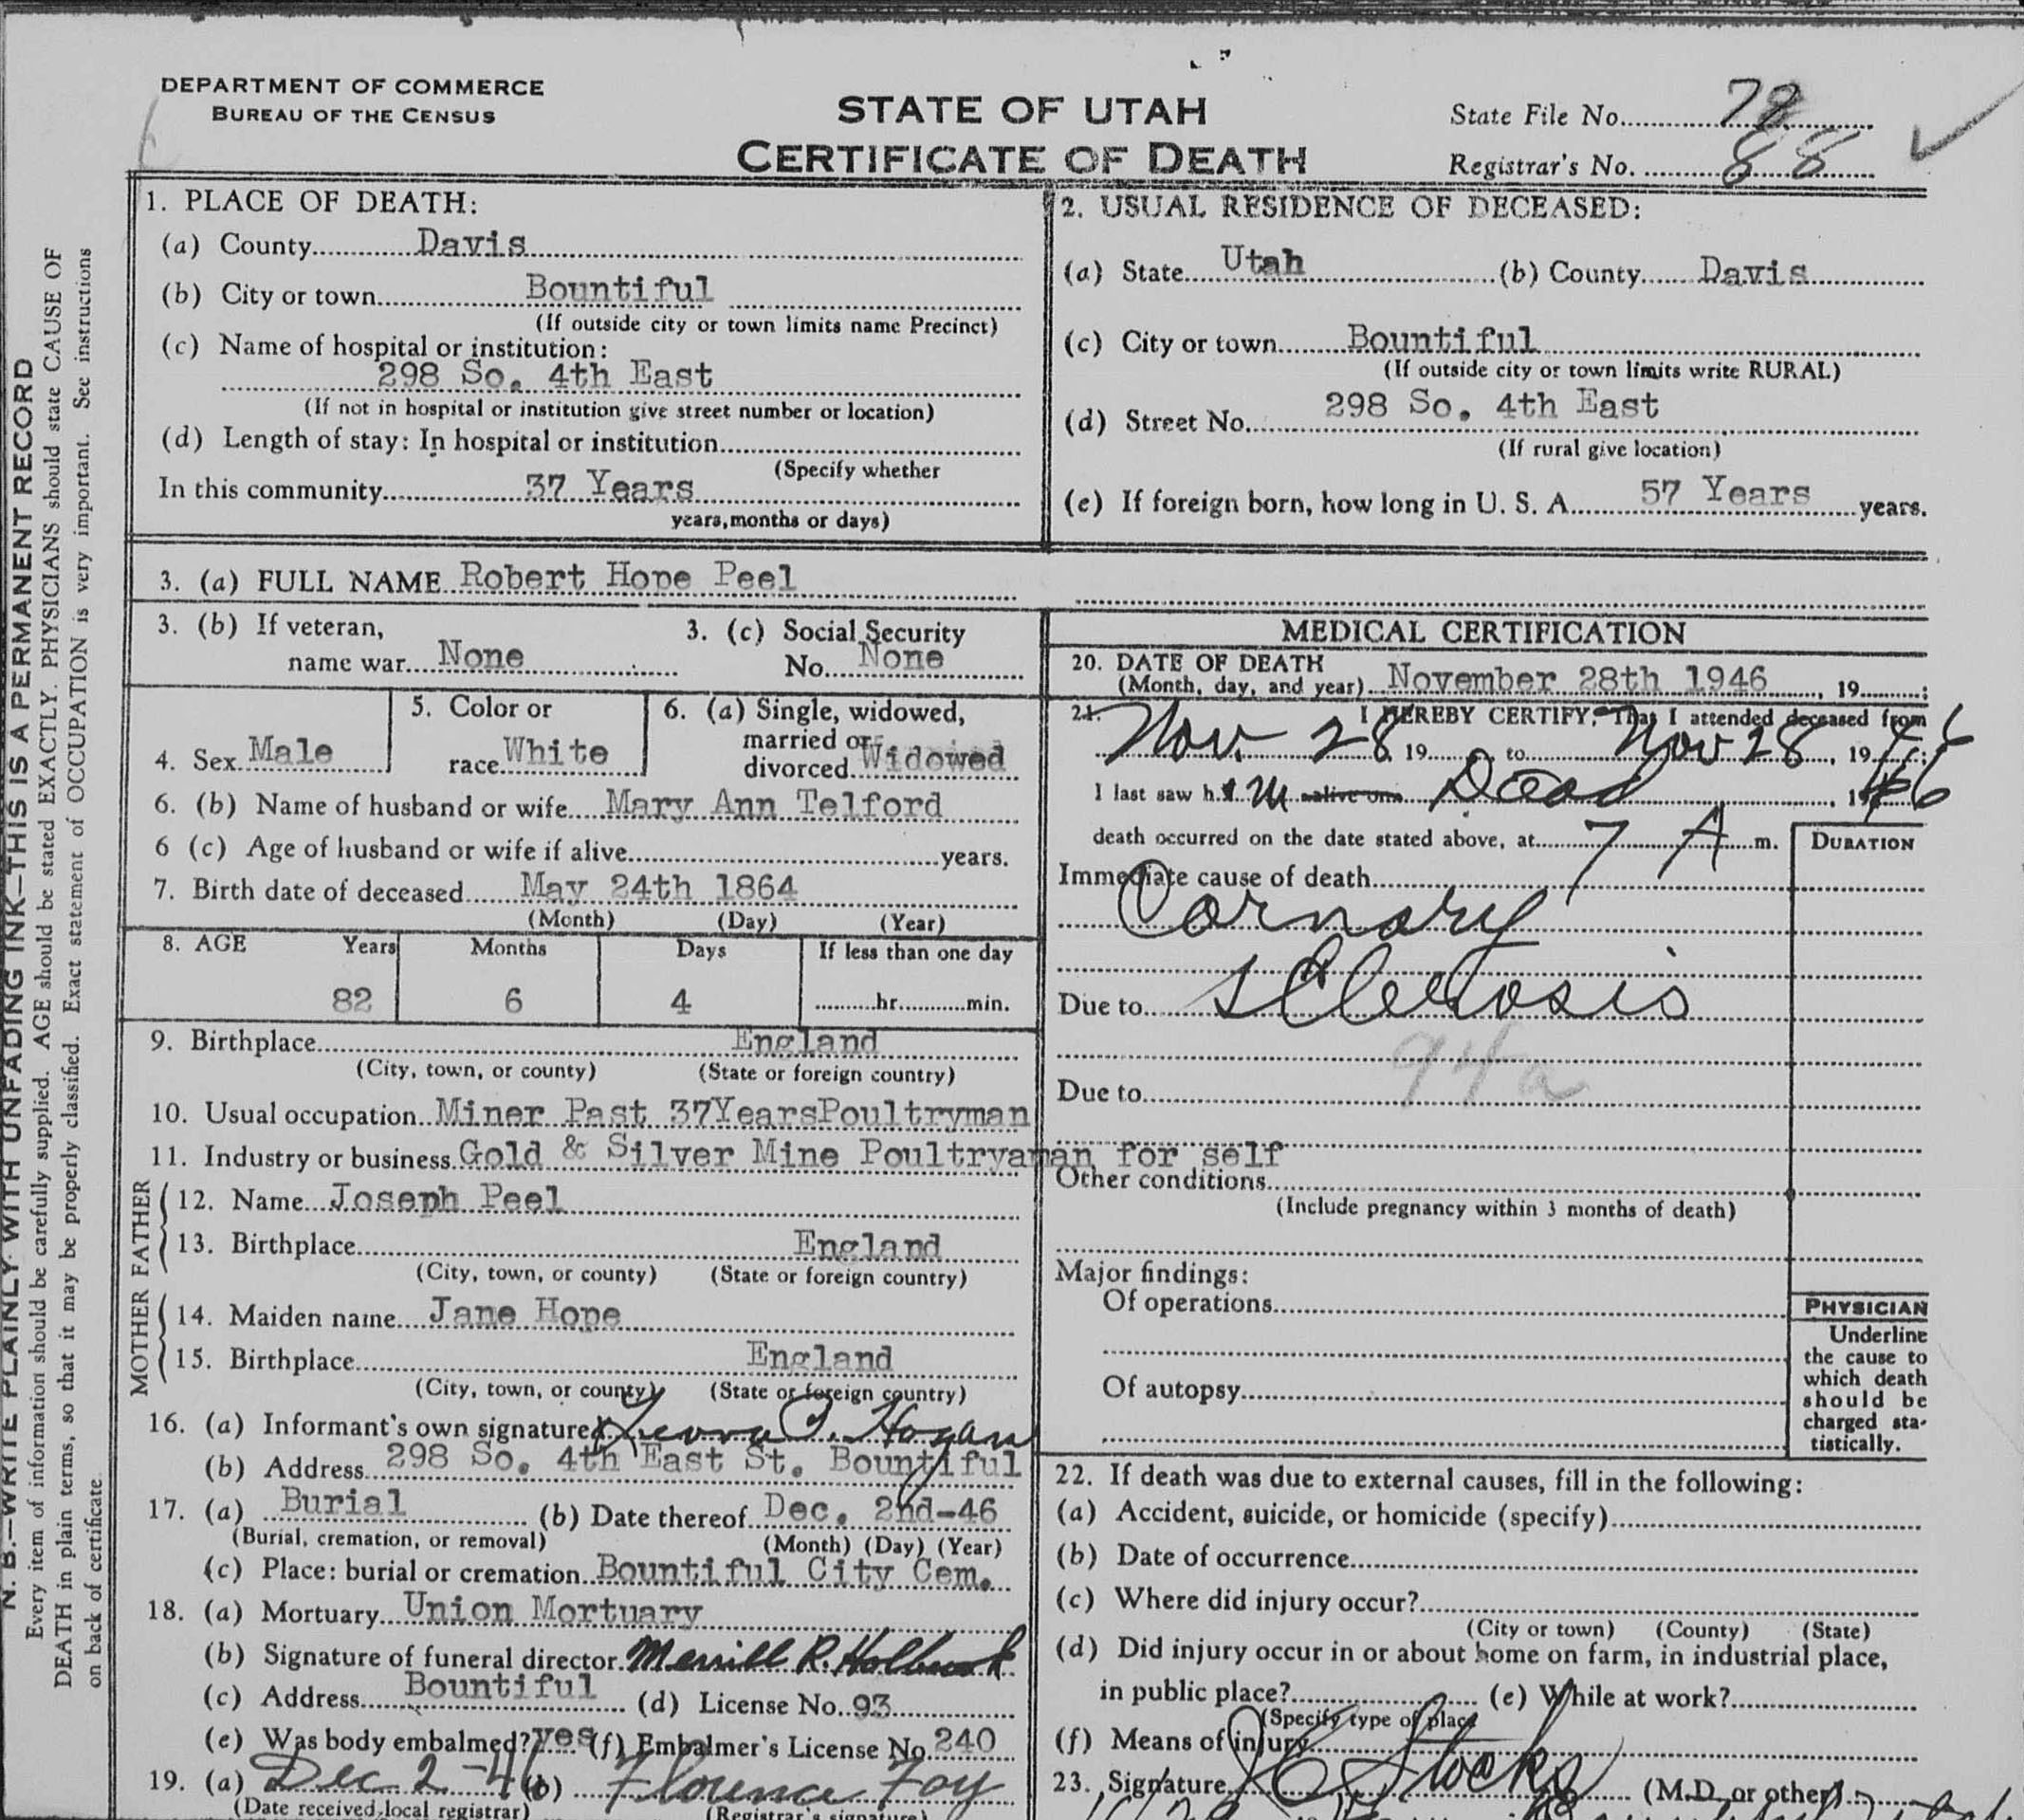 DEPARTMENT OF COMMERCE
BUREAU OF THE CENSUS
STATE OF UTAH
CERTIFICATE OF DEATH
State File No. 79
Registrar's No. 88
N. B.—WRITE PLAINLY WITH UNFADING INK—THIS IS A PERMANENT RECORD
Every item of information should be carefully supplied. AGE should be stated EXACTLY. PHYSICIANS should state CAUSE OF
DEATH in plain terms, so that it may be properly classified. Exact statement of OCCUPATION is very important. See instructions
on back of certificate.
1. PLACE OF DEATH:
(a) County Davis
(b) City or town Bountiful
(If outside city or town limits name Precinct)
(c) Name of hospital or institution:
298 So. 4th East
(If not in hospital or institution give street number or location)
(d) Length of stay: In hospital or institution
(Specify whether
In this community 37 Years
years, months or days)
2. USUAL RESIDENCE OF DECEASED:
(a) State Utah (b) County Davis
(c) City or town Bountiful
(If outside city or town limits write RURAL)
(d) Street No. 298 So. 4th East
(If rural give location)
(e) If foreign born, how long in U. S. A. 57 Years years.
3. (a) FULL NAME Robert Hope Peel
3. (b) If veteran,
name war None
3. (c) Social Security
No. None
4. Sex Male
5. Color or
race White
6. (a) Single, widowed,
married or
divorced Widowed
6. (b) Name of husband or wife Mary Ann Telford
6 (c) Age of husband or wife if alive years.
7. Birth date of deceased May 24th 1864
(Month) (Day) (Year)
8. AGE Years Months Days If less than one day
82 6 4 hr. min.
9. Birthplace England
(City, town, or county) (State or foreign country)
10. Usual occupation Miner Past 37YearsPoultryman
11. Industry or business Gold & Silver Mine Poultryaman for self
FATHER
12. Name Joseph Peel
13. Birthplace England
(City, town, or county) (State or foreign country)
MOTHER
14. Maiden name Jane Hope
15. Birthplace England
(City, town, or county) (State or foreign country)
16. (a) Informant's own signature P. Hogan
(b) Address 298 So. 4th East St. Bountiful
17. (a) Burial (b) Date thereof Dec. 2nd-46
(Burial, cremation, or removal) (Month) (Day) (Year)
(c) Place: burial or cremation Bountiful City Cem.
18. (a) Mortuary Union Mortuary
(b) Signature of funeral director Merrill R. Holbrook
(c) Address Bountiful (d) License No. 93
(e) Was body embalmed? yes (f) Embalmer's License No. 240
19. (a) Dec 2-46 (b) Florence Foy
(Date received local registrar) (Registrar's signature)
MEDICAL CERTIFICATION
20. DATE OF DEATH
(Month, day, and year) November 28th 1946, 19 ;
21. I HEREBY CERTIFY, That I attended deceased from
Nov. 28, 19 to Nov 28, 1946;
I last saw him alive on Dead, 1946
death occurred on the date stated above, at 7 A m.
DURATION
Immediate cause of death
Cornary
Due to sclerosis
94a
Due to
Other conditions
(Include pregnancy within 3 months of death)
Major findings:
Of operations
Of autopsy
PHYSICIAN
Underline
the cause to
which death
should be
charged sta-
tistically.
22. If death was due to external causes, fill in the following:
(a) Accident, suicide, or homicide (specify)
(b) Date of occurrence
(c) Where did injury occur?
(City or town) (County) (State)
(d) Did injury occur in or about home on farm, in industrial place,
in public place? (e) While at work?
(Specify type of place
(f) Means of injury
23. Signature Stocks (M.D. or other)